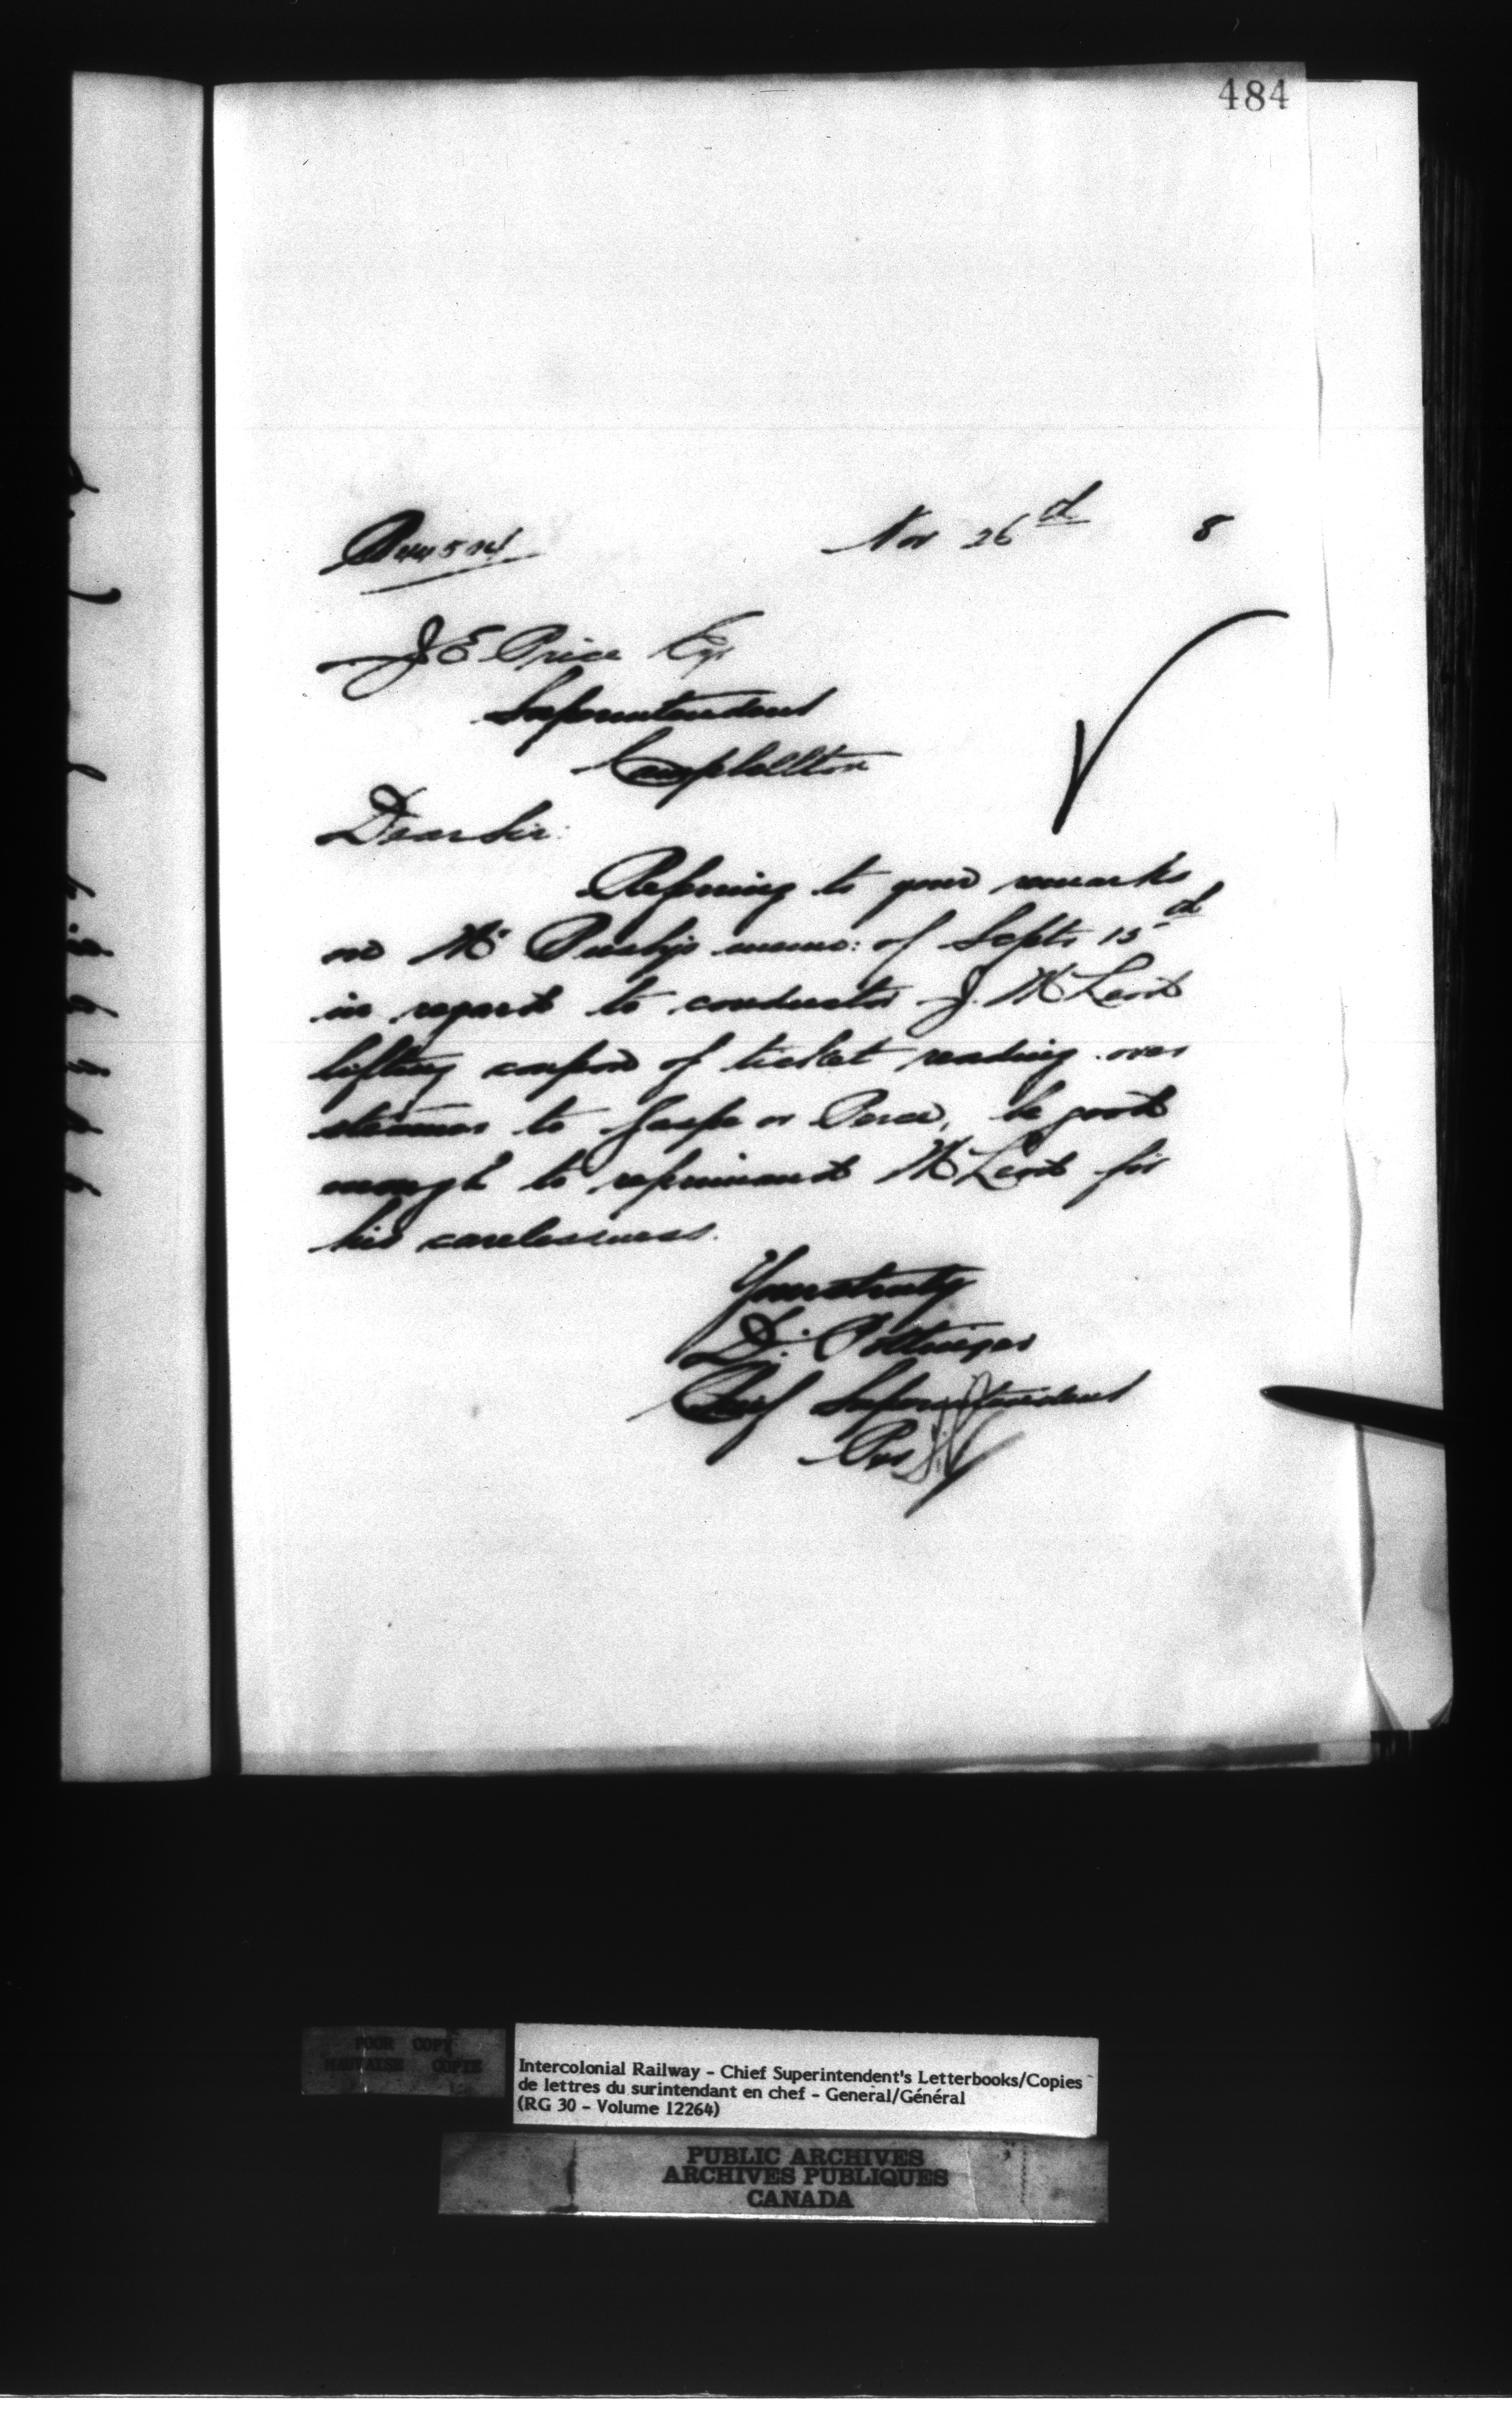 484
Nov 26th 8
J E Price Esqr
Superintendent
Campbellton
Dear Sir:
Referring to your remarks
on Mr memo: of Septr 15th
in regard to conductor J. McLeod
lifting coupon of ticket reading over
steamer to Gaspe or Perce, be good
enough to reprimand McLeod for
his carelessness.
Yours truly
D. Pottinger
Chief Superintendent
Per
POOR COPY
MAUVAISE COPIE
Intercolonial Railway - Chief Superintendent's Letterbooks/Copies
de lettres du surintendant en chef - General/Général
(RG 30 - Volume 12264)
PUBLIC ARCHIVES
ARCHIVES PUBLIQUES
CANADA